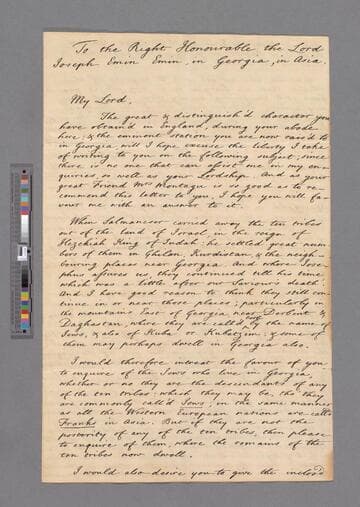 To the Right Honourable the Lord
Joseph Emin Emin, in Georgia, in Asia.
My Lord,
The great & distinguish'd character you
have obtain'd in England, during your abode
here; & the eminent station you are now rais'd to
in Georgia will I hope excuse the liberty I take
of writing to you on the following subject; since
there is no one that can assist me in my en-
quiries, so well as your Lordship. And as your
great Friend Mrs Montagu is so good as to re-
commend this letter to you, I hope you will fa-
vour me with an answer to it.
When Salmanesor carried away the ten tribes
out of the land of Israel, in the reign of
Hezekiah King of Judah: he settled great num-
bers of them in Ghilan, Kurdistan, & the neigh-
bouring places near Georgia. And where Jose-
phus assures us, they continued till his time
which was a little after our Saviour's death.
And I have good reason to think they still con-
tinue in or near those places; particularly in
the mountains East of Georgia, near Derbent &
Daghestan, where they are called by the name of
Jews, & also of & some of
them may perhaps dwell in Georgia also.
I would therefore intreat the favour of you
to enquire of the Jews who live in Georgia,
whether or no they are the descendants of any
of the ten tribes: which they may be, tho' they
are commonly call'd Jews, in the same manner
as all the Western European nations are call'd
Franks in Asia. But if they are not the
posterity of any of the ten tribes, then please
to enquire of them, where the remains of the
ten tribes now dwell.
I would also desire you to give the inclos'd